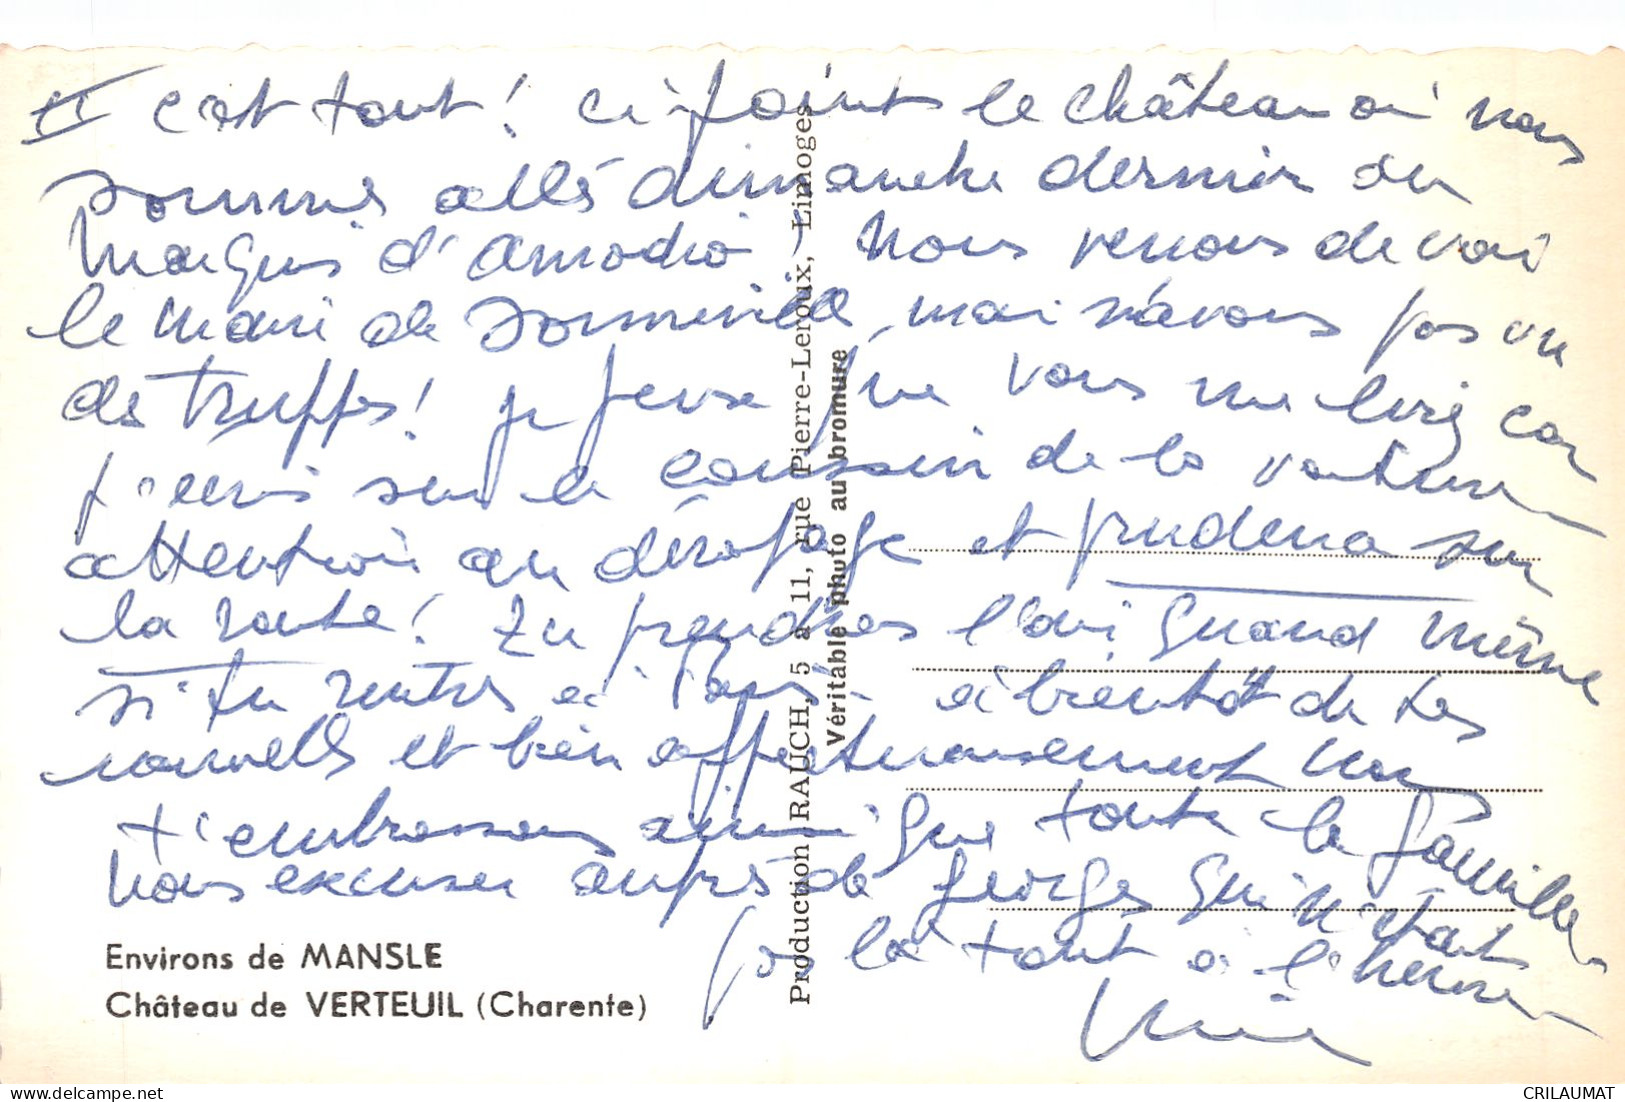 II c'est tout ! ci-joint le château où nous
sommes allés dimanche dernier au
Marquis d'Amodio. Nous venons de voir
le Maire de Sonneville, mais n'avons pas vu
de truffes ! je pense que vous me lirez car
j'écris sur le coussin de la voiture
attention au dérapage et prudence sur
la route ! Tu prendras l'avis quand même
si tu rentres à
à bientôt de tes
nouvelles et bien affectueusement nous
t'embrassons ainsi que toute la famille
Nous excuser auprès de Georges qui n'était
pas là tout à l'heure
Environs de MANSLE
Château de VERTEUIL (Charente)
Production RAUCH, 5 à 11, rue Pierre-Leroux, Limoges
Véritable photo au bromure
CRILAUMAT